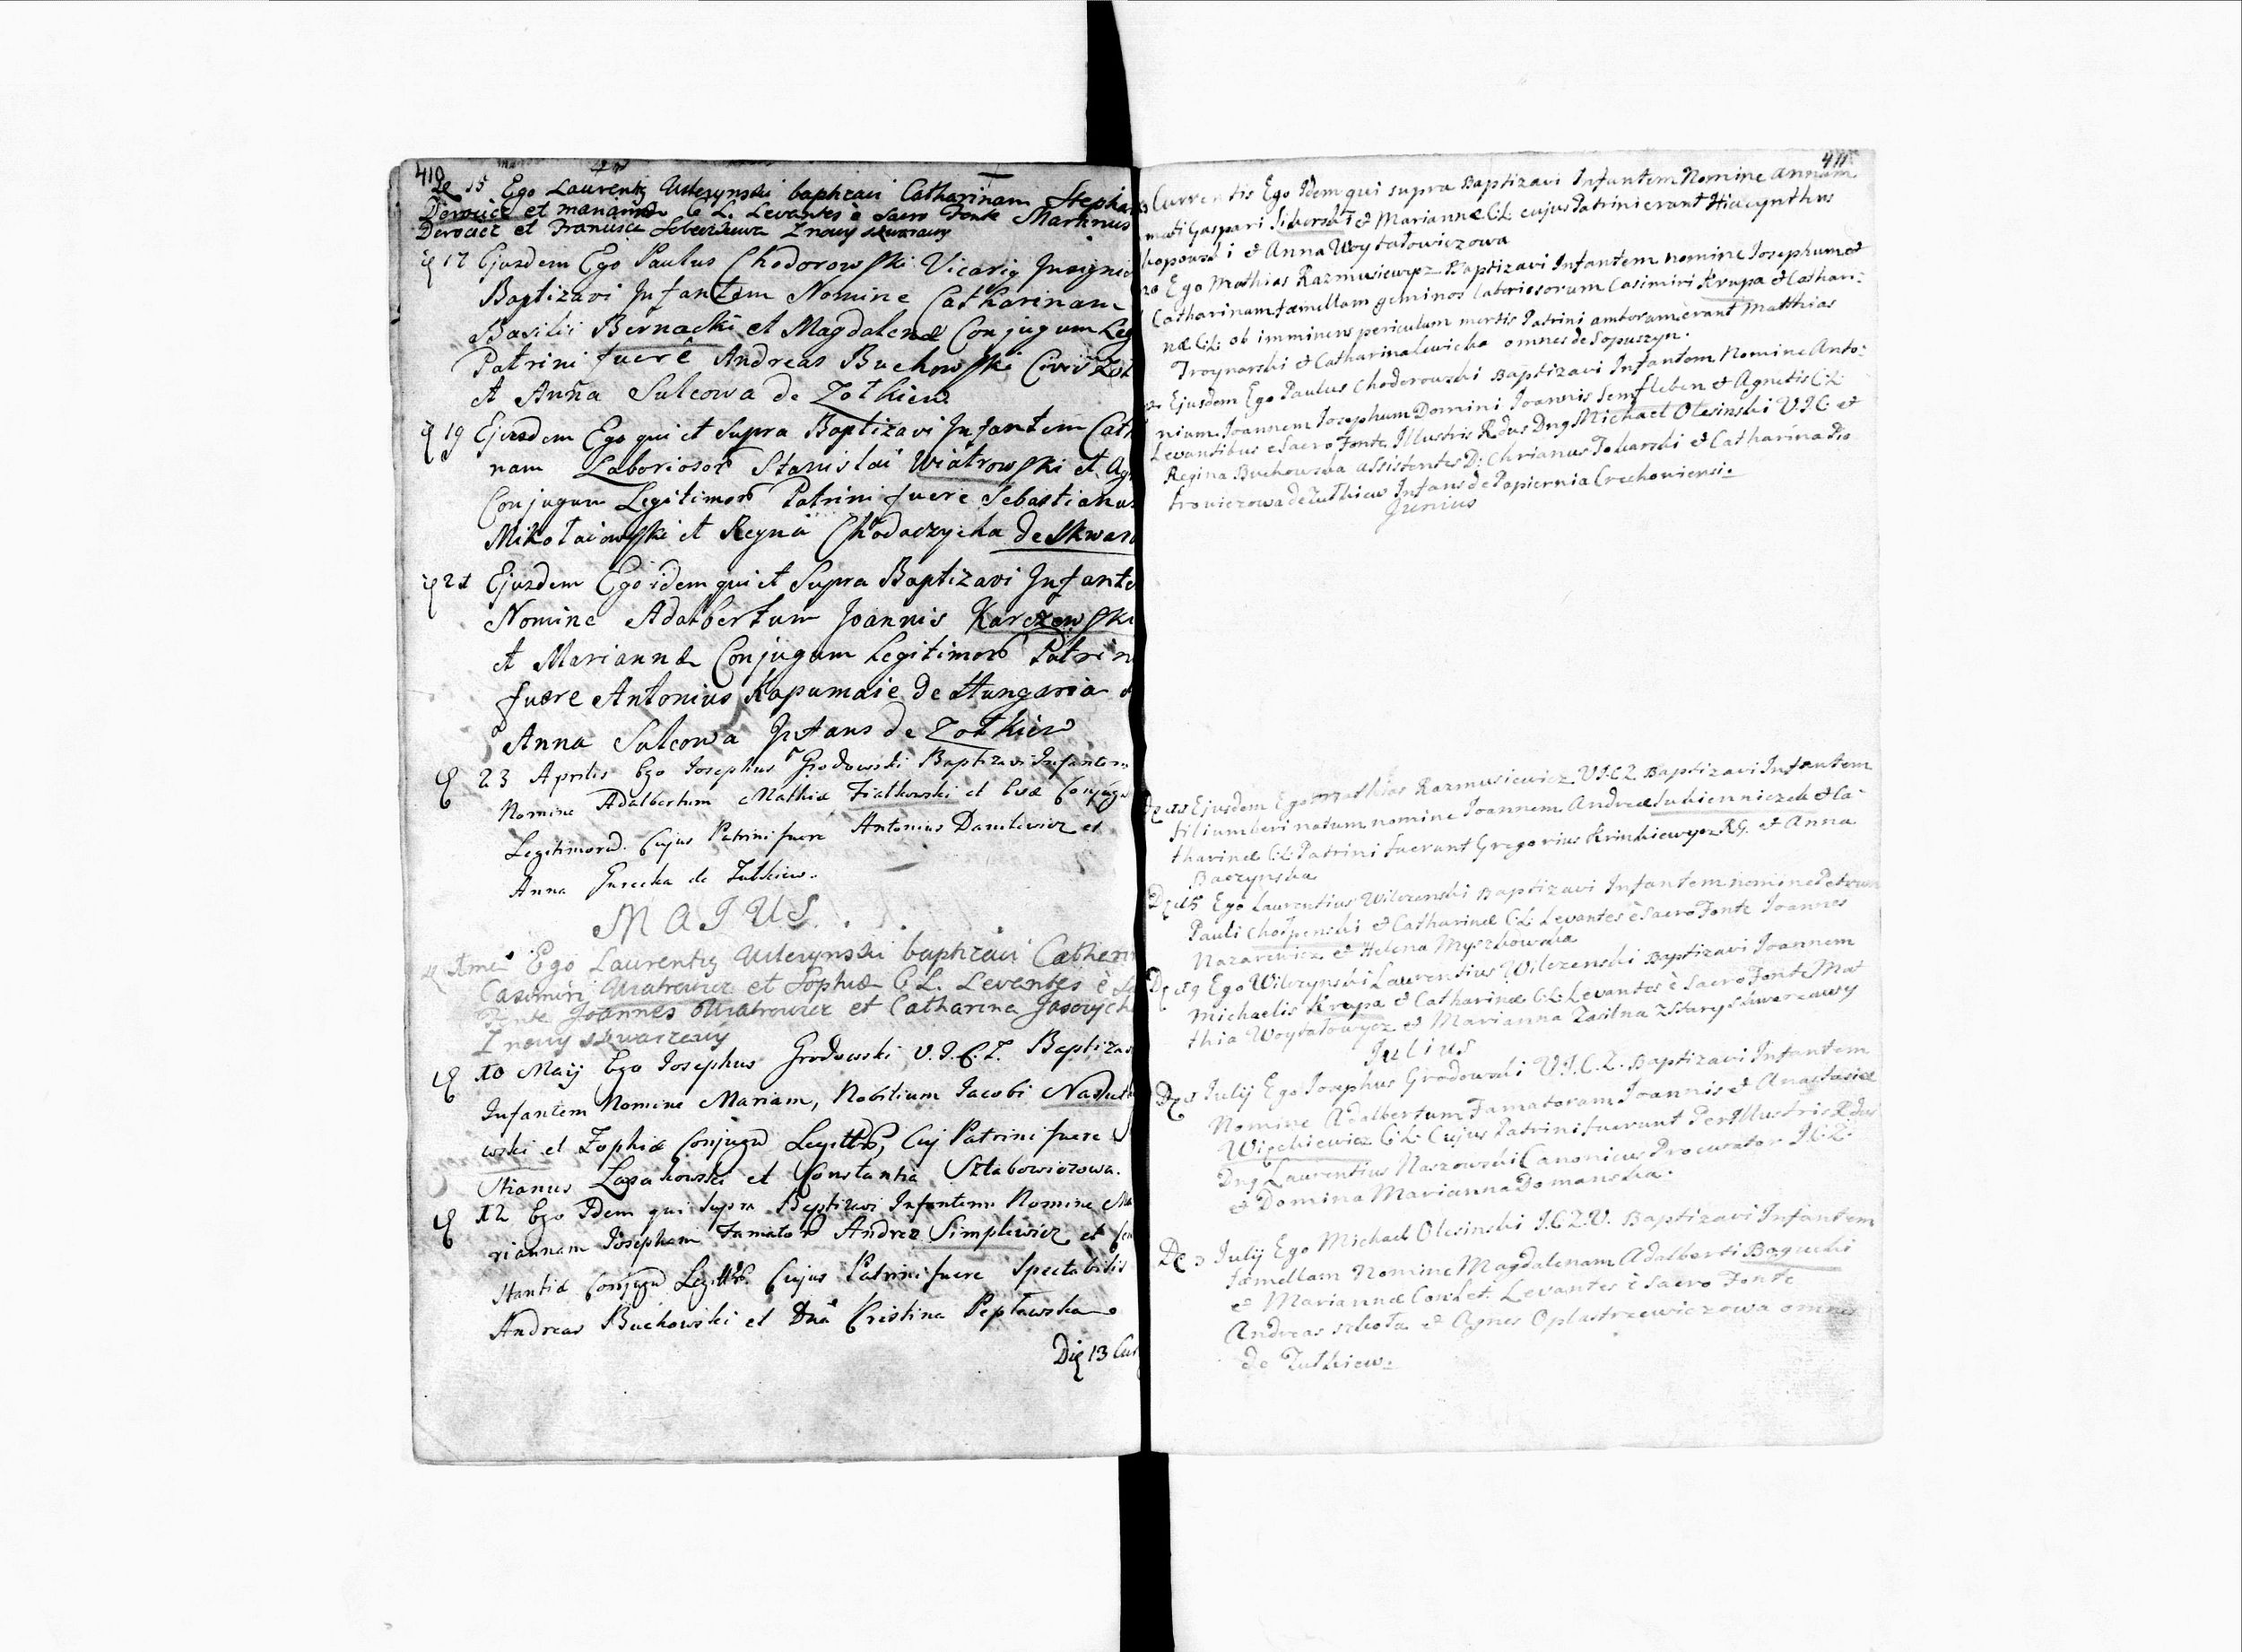 410
De 15 Ego Laurentig Wilczynski baptizavi Catharinam Stepha
Derowicz et Marianna C L. Levantes è Sacro Fonte Martinus
Derowicz et Francisca Z nowy skwarzawy
17 Ejusdem Ego Paulus Chodorowski Vicarig Insignis
Baptizavi Infantem Nomine Catharinam
Basilii Bernacki et Magdalenæ Conjugum Leg
Patrini fuere Andreas Buchowski Civis Zoł
et Anna Sulcowa de Zołkiew
19 Ejusdem Ego qui et Supra Baptizavi Infantem Cath
nam Laborioso Stanislai Wiatrowski et Ag
Conjugum Legitimor Patrini fuere Sebastianus
Mikołaiowski et Regina Chodaczycha de Skwar
21 Ejusdem Ego idem qui et Supra Baptizavi Infante
Nomine Adalbertum Joannis Karczewski
et Mariannæ Conjugum Legitimor Patrin
fuere Antonius Kapumaie de Hungaria
Anna Sulcowa Infans de Zołkiew
23 Aprilis Ego Josephus Grodowski Baptizavi Infantem
Nomine Adalbertum Mathiæ Fiałkowski et Evæ Conjug
Legitimor. Cujus Patrini fuere Antonius Danilewicz et
Anna Gurecka de Zulkiew.
MAIUS.
Ego Laurentig Wilczynski baptizavi Cathari
Casimiri Wiatrowicz et Sophiæ C L. Levantes è Sa
Fonte Joannes Wiatrowicz et Catharina
Z nowy skwarzawy
10 Maij Ego Josephus Grodowski V.I.C.Z. Baptizav
Infantem Nomine Mariam, Nobilium Jacobi Nasut
wski et Zophiæ Conjugu Legitt, Cuj Patrini fuere
stianus Lasakowski et Constantia Sztabowiczowa.
12 Ego Idem qui Supra Baptizavi Infantem Nomine Ma
riannam Josepham Famato Andrea Simplewicz et Con
stantiæ Conjugu Legitt. Cujus Patrini fuere Spectabilis
Andreas Buchowski et Dna Cristina Pepławska
Die 13 Cur
411
Currentis Ego Idem qui supra Baptizavi Infantem Nomine Annam
mati Gaspari Siberski et Mariannæ C.L. cujus Patrini erant Hiacynthus
kopowski et Anna Woytałowiczowa
20 Ego Mathias Razmusiewycz Baptizavi Infantem nomine Josephum et
Catharinam fæmellam geminos laboriosorum Casimiri Krupa et Cathari:
næ C.L. ob imminens periculum mortis Patrini amborum erant Matthias
Troynarski et Catharina Lewicka omnes de Sopuszyn.
Ejusdem Ego Paulus Chodorowski Baptizavi Infantem Nomine Anto:
nium Joannem Josephum Domini Joannis Semfleben et Agnetis C.L.
Levantibus e Sacro Fonte Illustris Rdus Dng Michael Olesinski V.I.C. et
Regina Buchowska assistentes D. Chrianus Tokarski et Catharina Pio
trowiczowa de Zulkiew Infans de Papiernia Crechowiensi.
Junius
Ejusdem Ego Mathias Razmusiewicz V.I.C.Z. Baptizavi Infantem
filium heri natum nomine Joannem Andreæ Sukienniczek et Ca
tharinæ C.L. Patrini fuerunt Gregorius Krinkiewycz R.G. et Anna
Baczynska
15 Ego Laurentius Wilczenski Baptizavi Infantem nomine Petrum
Pauli Chospenski et Catharinæ C.L. Levantes è Sacro Fonte Joannes
Nazarewicz et Helena Myszkowska
19 Ego Wilczynski Laurentius Wilczenski Baptizavi Joannem
Michaelis Krupa et Catharinæ C.L. Levantes è Sacro Fonte Mat
thia Woytałowycz et Marianna Zasilna z Stary Skwarzawy
Julius
Julij Ego Josephus Grodowski V.I.C.Z. Baptizavi Infantem
Nomine Adalbertum Famatorum Joannis et Anastasiæ
Więckiewicz C.L. Cujus Patrini fuerunt Perillustris Rdus
Dng Laurentius Naszowski Canonicus Procurator I.C.Z.
et Domina Marianna Domanska.
De 3 Julij Ego Michael Olesinski I.C.Z.V. Baptizavi Infantem
fæmellam Nomine Magdalenam Adalberti Bogucki
et Mariannæ Con Let. Levantes è Sacro Fonte
Andreas Szkoła et Agnes Oplastrzewiczowa omnes
de Zulkiew.